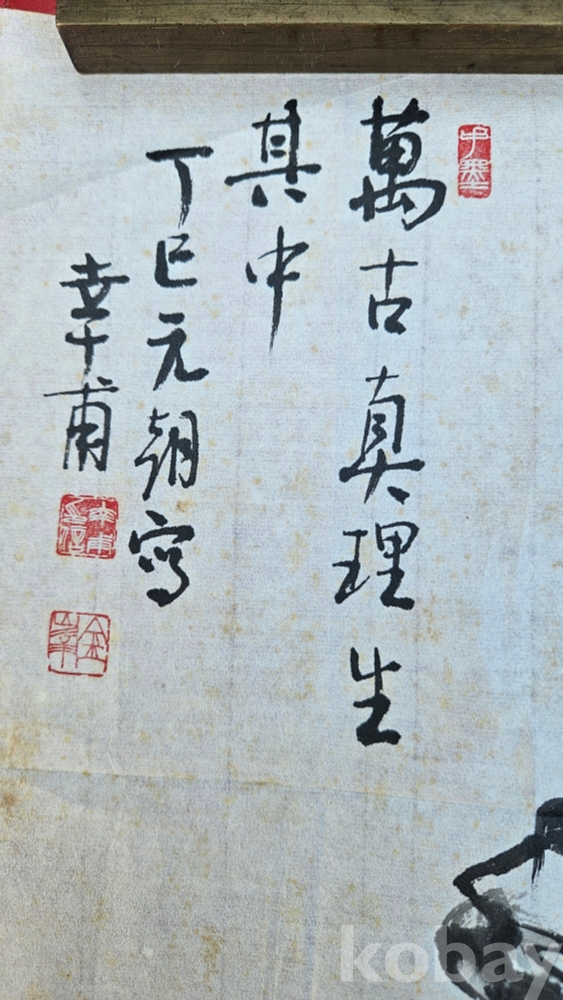 萬古真理生
其中
丁巳元朝寫
幸甫
kobay